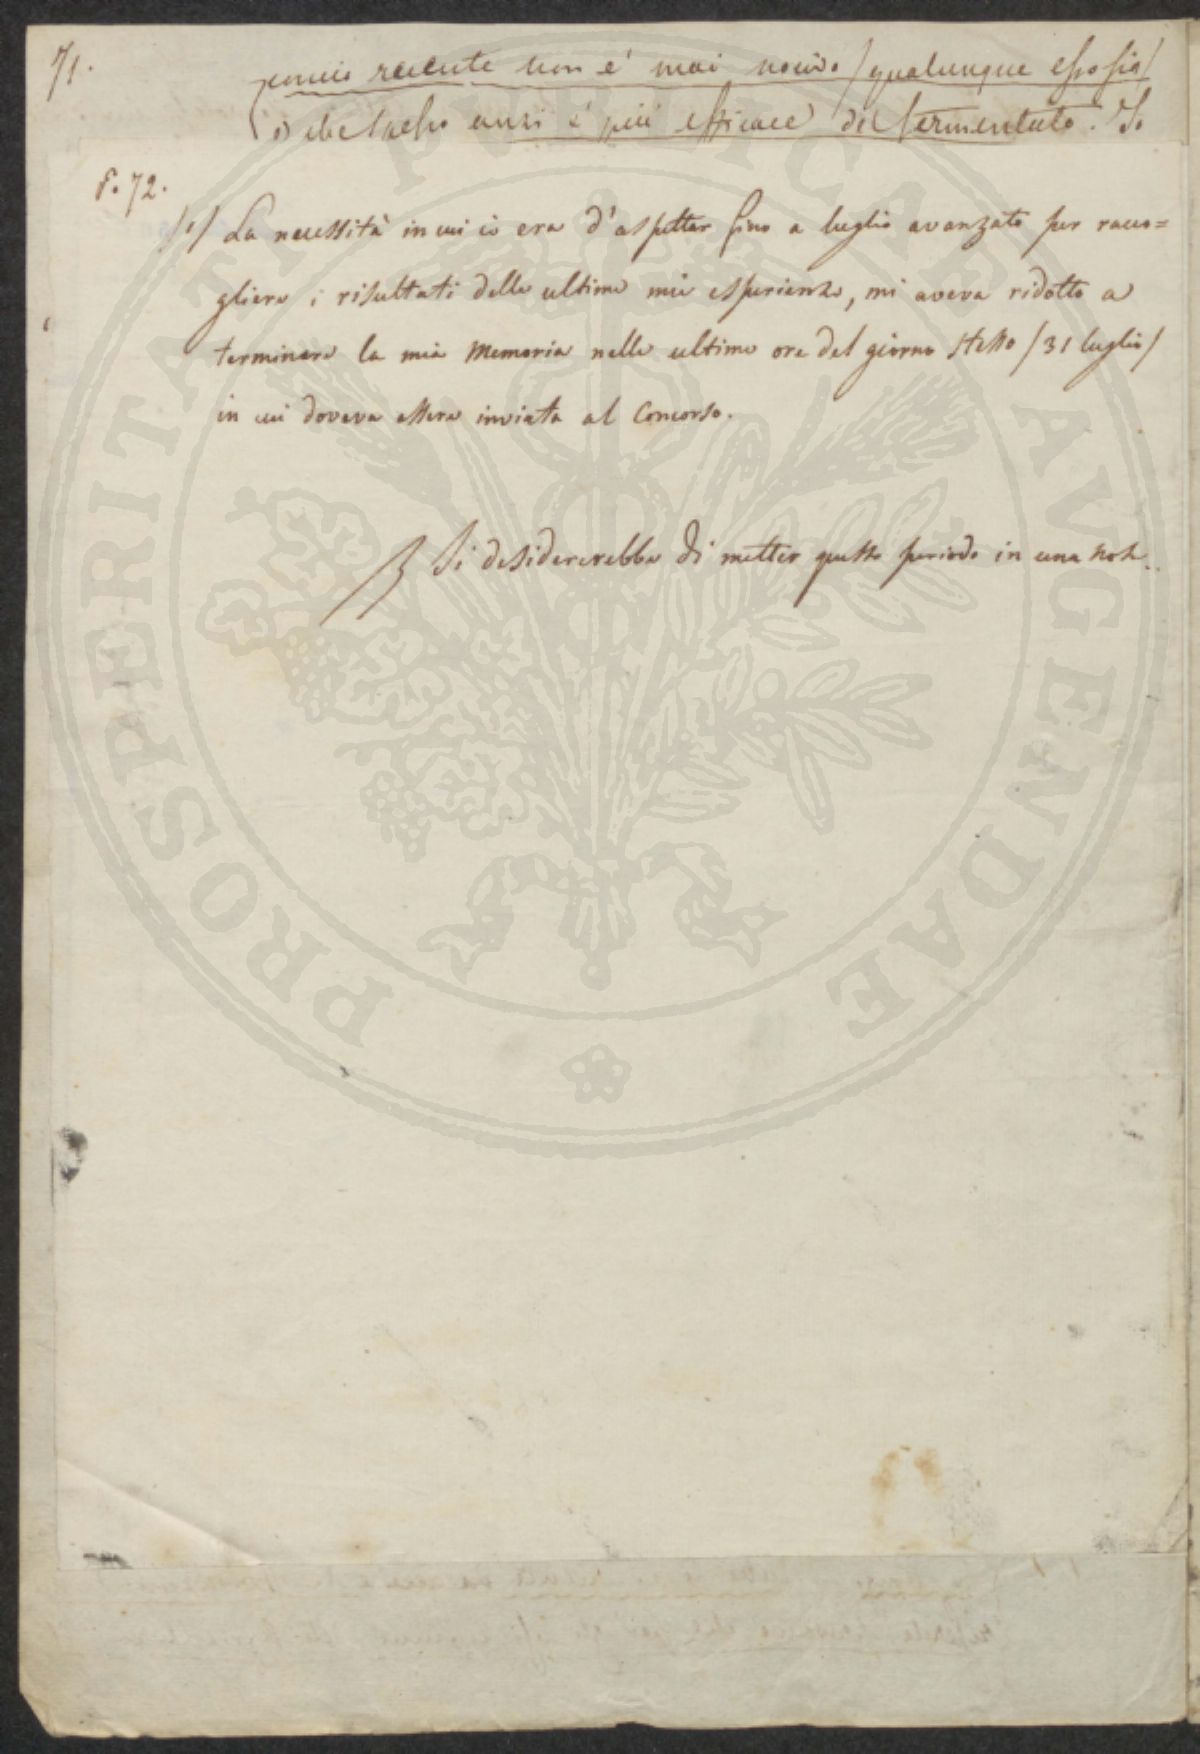 71.
concio recente non è mai nocivo /qualunque esso sia/
o che lo stesso anzi è più efficace del fermentato. Io
P. 72.
/1/ La necessità in cui io era d'aspettar fino a luglio avanzato per racco=
gliere i risultati delle ultime mie esperienze, mi aveva ridotto a
terminare la mia Memoria nelle ultime ore del giorno stesso /31 luglio/
in cui doveva essere inviata al Concorso.
Si desidererebbe di metter questo periodo in una nota.
PROSPERITATI PUBLICAE AVGENDAE